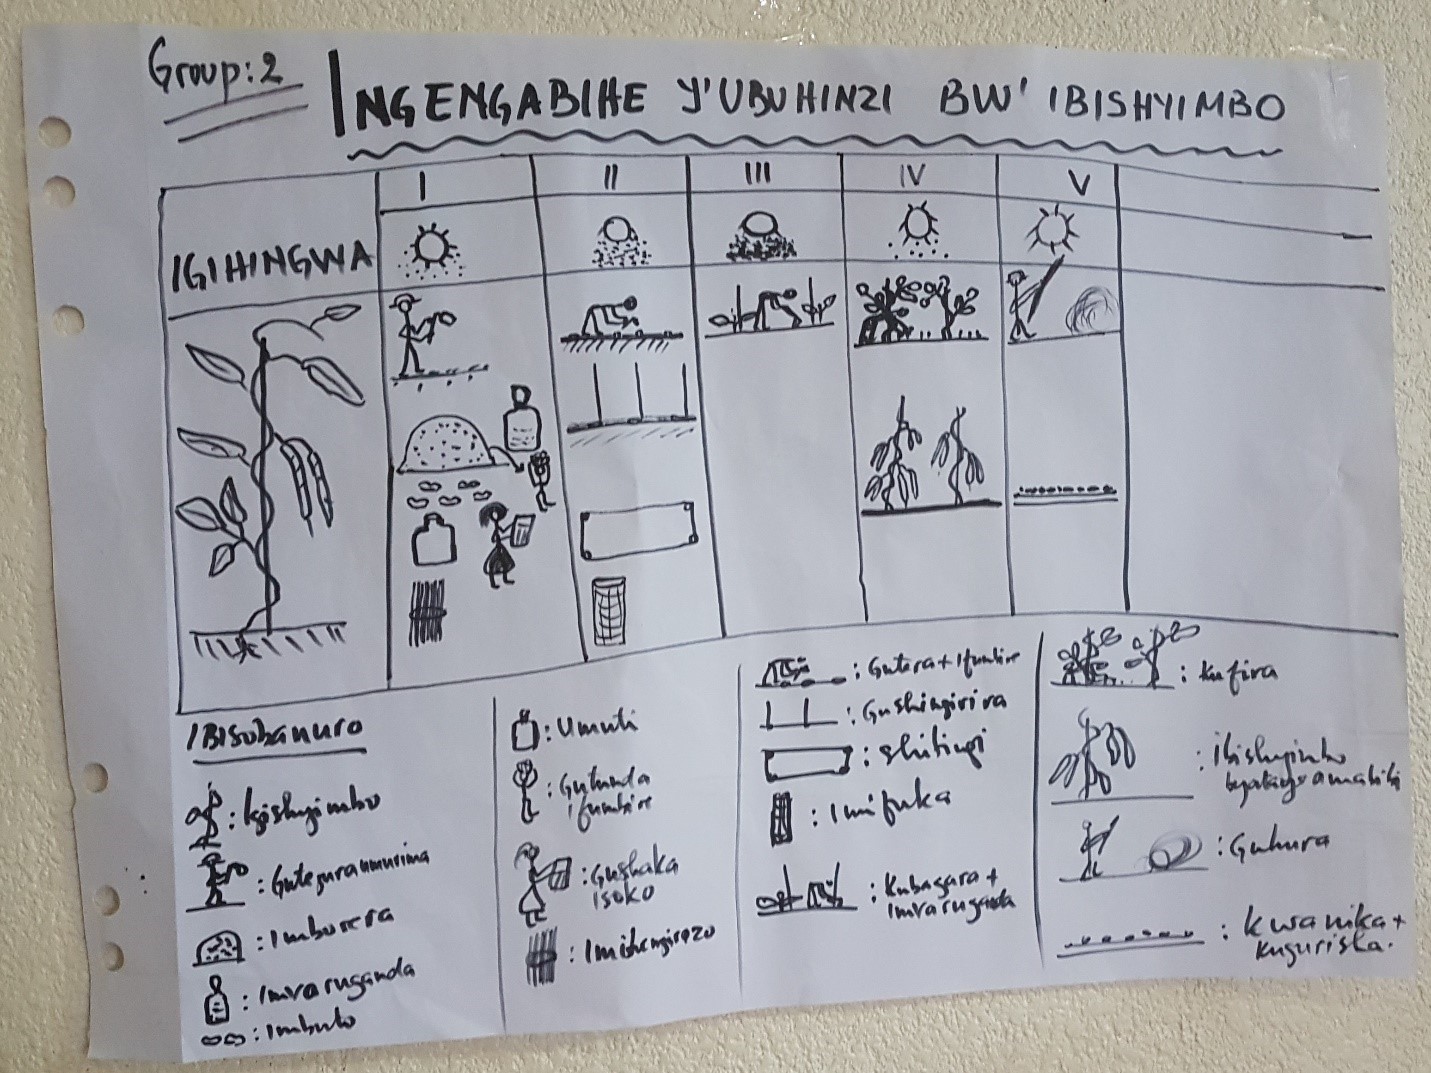 Group: 2
INGENGABIHE Y'UBUHINZI BW' IBISHYIMBO
I II III IV V
IGIHINGWA
IBISOBANURO
: Igishyimbo
: Guteguraumurima
: Imborera
: Imvaruganda
: Imbuto
: Umuti
: Gutunda
ifumbire
: Gushaka
isoko
: Imishingirizo
: Gutera + ifumbire
: Gushingirira
: shitingi
: Imifuka
: Kubagara +
imvaruganda
: Kufira
: ibishyimbo
: Guhura
: Kwanika +
kugurisha.